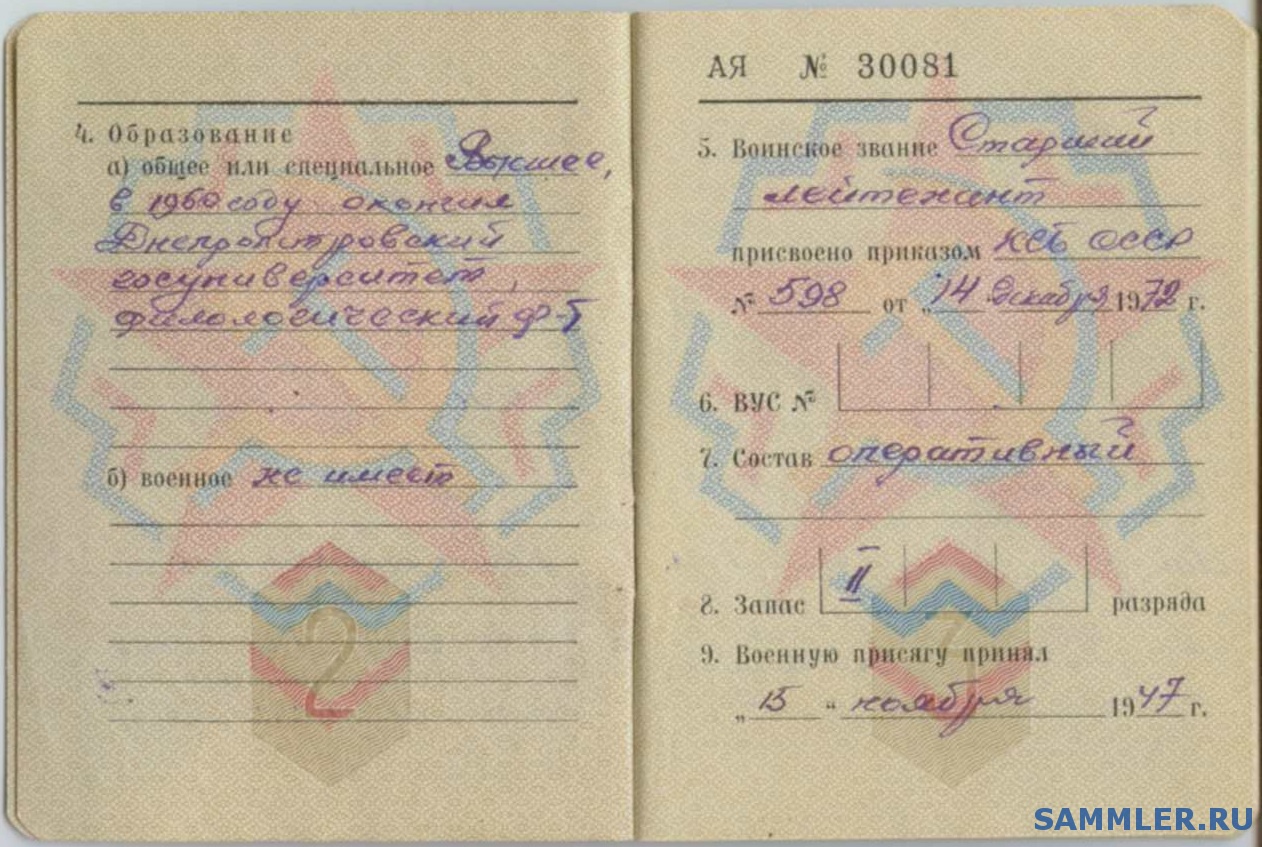 4. Образование
а) общее или специальное Высшее,
в 1960 году окончил
Днепропетровский
госуниверситет,
филологический ф-т
б) военное не имеет
2
АЯ № 30081
5. Воинское звание Старший
лейтенант
присвоено приказом КГБ СССР
№ 598 от „14 декабря 1972 г.
6. ВУС №
7. Состав оперативный
8. Запас II разряда
9. Военную присягу принял
„15“ ноября 1947 г.
SAMMLER.RU